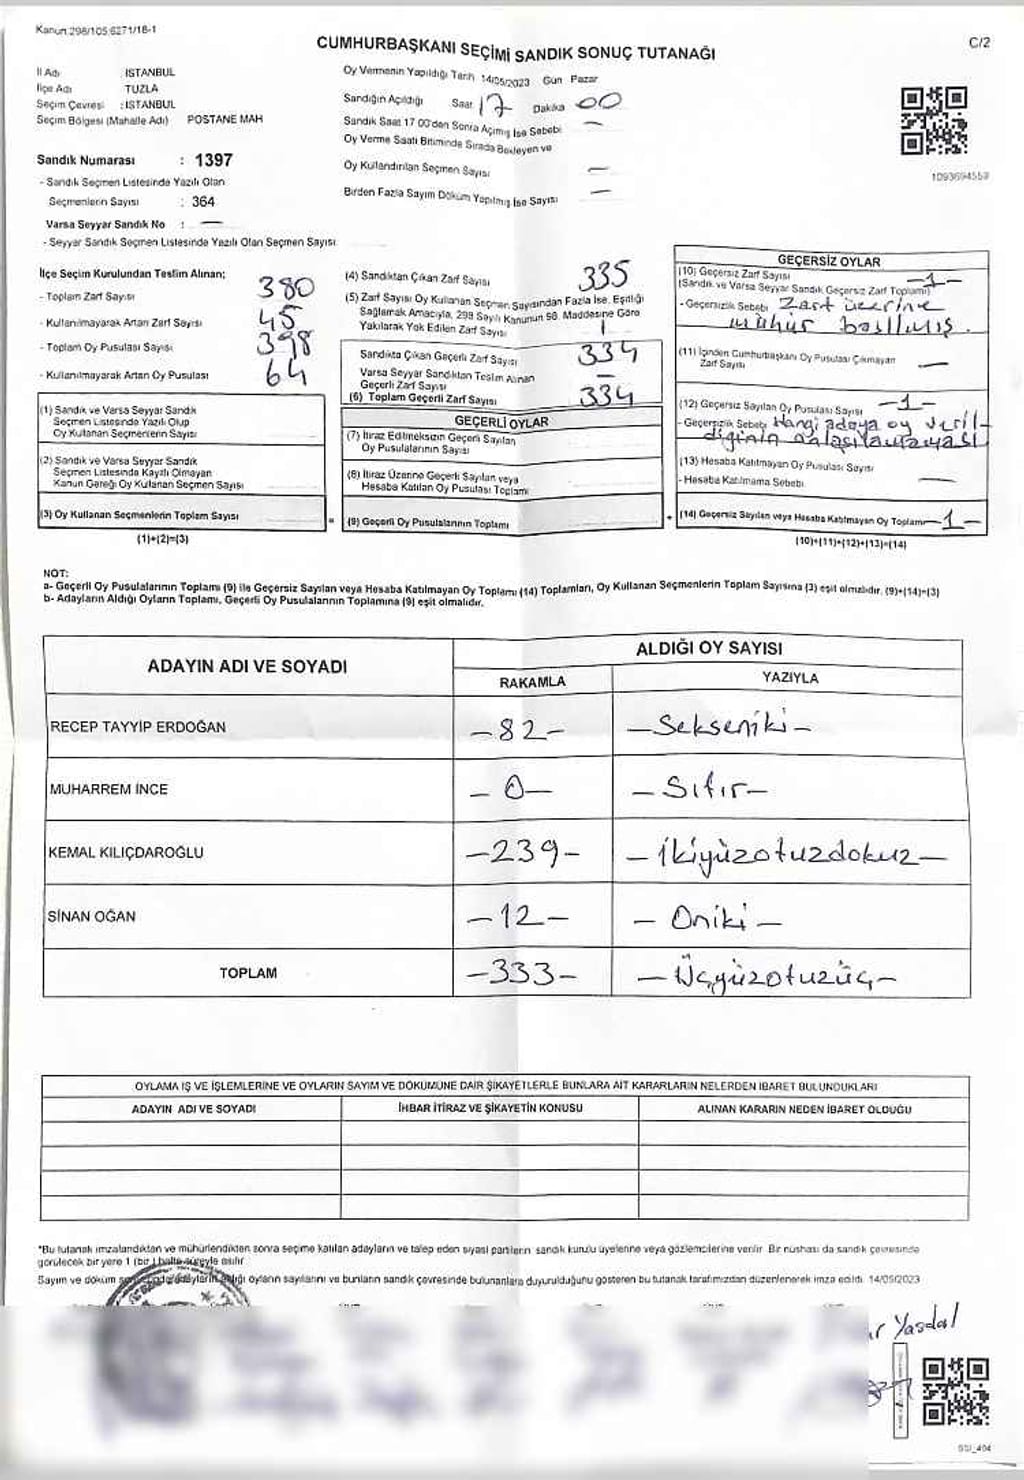 Kanun:298/105;6271/18-1
C/2
CUMHURBAŞKANI SEÇİMİ SANDIK SONUÇ TUTANAĞI
İl Adı : İSTANBUL
İlçe Adı : TUZLA
Seçim Çevresi : İSTANBUL
Seçim Bölgesi (Mahalle Adı) POSTANE MAH
Sandık Numarası : 1397
- Sandık Seçmen Listesinde Yazılı Olan
Seçmenlerin Sayısı : 364
Varsa Seyyar Sandık No : —
- Seyyar Sandık Seçmen Listesinde Yazılı Olan Seçmen Sayısı
Oy Vermenin Yapıldığı Tarih 14/05/2023 Gün Pazar
Sandığın Açıldığı Saat 17 Dakika 00
Sandık Saat 17 00'den Sonra Açılmış İse Sebebi —
Oy Verme Saati Bitiminde Sırada Bekleyen ve
Oy Kullandırılan Seçmen Sayısı —
Birden Fazla Sayım Döküm Yapılmış İse Sayısı —
1093694559
İlçe Seçim Kurulundan Teslim Alınan;
- Toplam Zarf Sayısı 380
- Kullanılmayarak Artan Zarf Sayısı 45
- Toplam Oy Pusulası Sayısı 398
- Kullanılmayarak Artan Oy Pusulası 64
(1) Sandık ve Varsa Seyyar Sandık
Seçmen Listesinde Yazılı Olup
Oy Kullanan Seçmenlerin Sayısı
(2) Sandık ve Varsa Seyyar Sandık
Seçmen Listesinde Kayıtlı Olmayan
Kanun Gereği Oy Kullanan Seçmen Sayısı
(3) Oy Kullanan Seçmenlerin Toplam Sayısı
(1)+(2)=(3)
(4) Sandıktan Çıkan Zarf Sayısı 335
(5) Zarf Sayısı Oy Kullanan Seçmen Sayısından Fazla İse, Eşitliği
Sağlamak Amacıyla, 298 Sayılı Kanunun 98. Maddesine Göre
Yakılarak Yok Edilen Zarf Sayısı 1
Sandıkta Çıkan Geçerli Zarf Sayısı 334
Varsa Seyyar Sandıktan Teslim Alınan
Geçerli Zarf Sayısı —
(6) Toplam Geçerli Zarf Sayısı 334
GEÇERLİ OYLAR
(7) İtiraz Edilmeksizin Geçerli Sayılan
Oy Pusulalarının Sayısı
(8) İtiraz Üzerine Geçerli Sayılan veya
Hesaba Katılan Oy Pusulası Toplamı
= (9) Geçerli Oy Pusulalarının Toplamı
GEÇERSİZ OYLAR
(10) Geçersiz Zarf Sayısı —1—
(Sandık ve Varsa Seyyar Sandık Geçersiz Zarf Toplamı)
- Geçersizlik Sebebi Zarf üzerine
mühür basılmış.
(11) İçinden Cumhurbaşkanı Oy Pusulası Çıkmayan
Zarf Sayısı —
(12) Geçersiz Sayılan Oy Pusulası Sayısı —1—
- Geçersizlik Sebebi Hangi adaya oy veril-
diğinin anlaşılamaması
(13) Hesaba Katılmayan Oy Pusulası Sayısı —
- Hesaba Katılmama Sebebi
+ (14) Geçersiz Sayılan veya Hesaba Katılmayan Oy Toplamı —1—
(10)+(11)+(12)+(13)=(14)
NOT:
a- Geçerli Oy Pusulalarının Toplamı (9) ile Geçersiz Sayılan veya Hesaba Katılmayan Oy Toplamı (14) Toplamları, Oy Kullanan Seçmenlerin Toplam Sayısına (3) eşit olmalıdır. (9)+(14)=(3)
b- Adayların Aldığı Oyların Toplamı, Geçerli Oy Pusulalarının Toplamına (9) eşit olmalıdır.
ADAYIN ADI VE SOYADI
ALDIĞI OY SAYISI
RAKAMLA YAZIYLA
RECEP TAYYİP ERDOĞAN —82— —Sekseniki—
MUHARREM İNCE —0— —Sıfır—
KEMAL KILIÇDAROĞLU —239— —İkiyüzotuzdokuz—
SİNAN OĞAN —12— —Oniki—
TOPLAM —333— —Üçyüzotuzüç—
OYLAMA İŞ VE İŞLEMLERİNE VE OYLARIN SAYIM VE DÖKÜMÜNE DAİR ŞİKAYETLERLE BUNLARA AİT KARARLARIN NELERDEN İBARET BULUNDUKLARI
ADAYIN ADI VE SOYADI İHBAR İTİRAZ VE ŞİKAYETİN KONUSU ALINAN KARARIN NEDEN İBARET OLDUĞU
*Bu tutanak imzalandıktan ve mühürlendikten sonra seçime katılan adayların ve talep eden siyasi partilerin sandık kurulu üyelerine veya gözlemcilerine verilir. Bir nüshası da sandık çevresinde
görülecek bir yere 1 (bir) hafta süreyle asılır
Sayım ve döküm adayların aldığı oyların sayılarını ve bunların sandık çevresinde bulunanlara duyurulduğunu gösteren bu tutanak tarafımızdan düzenlenerek imza edildi. 14/05/2023
Yasdal